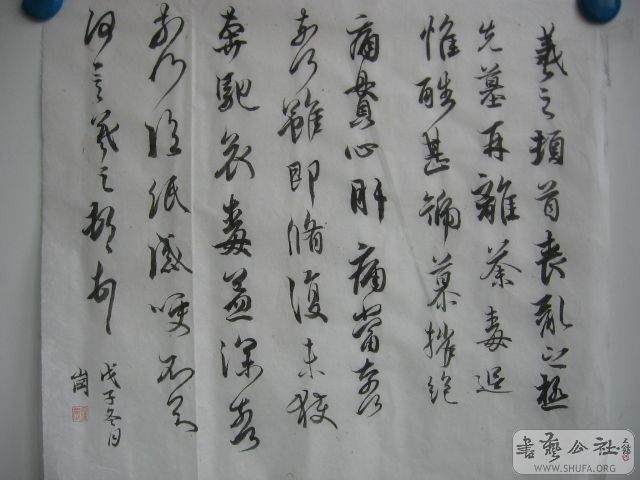 羲之頓首喪亂之極
先墓再離荼毒追
惟酷甚號慕摧絕
痛貫心肝痛當奈何
奈何雖即脩復未獲
奔馳哀毒益深奈何
奈何臨紙感哽不知
何言羲之頓首
戊子冬月
崗
書藝公社
WWW.SHUFA.ORG